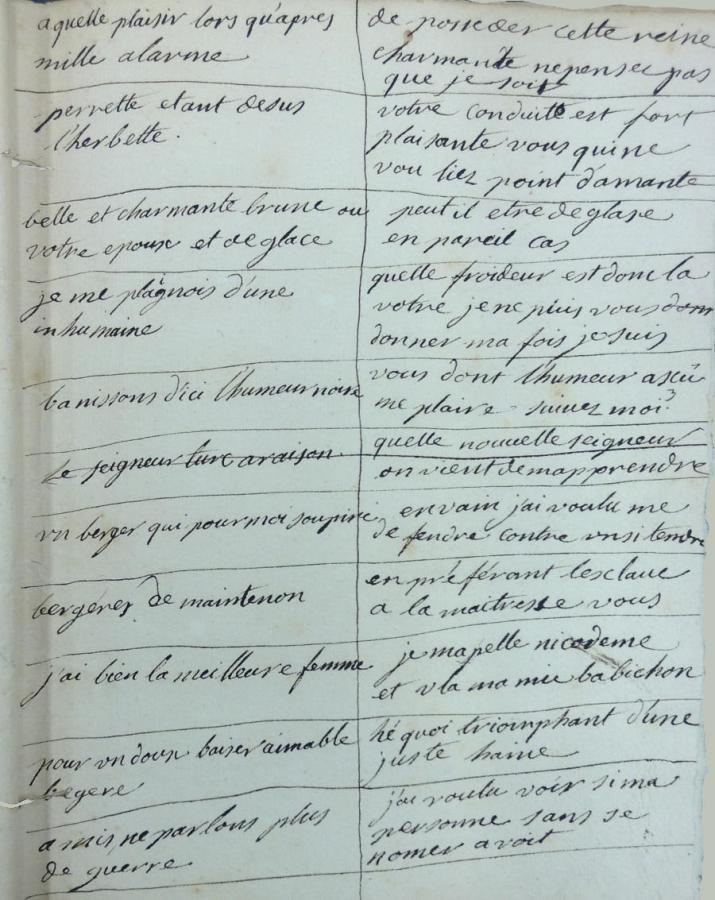 a quelle plaisir lors qu'apres
mille alarme
perrette etant desus
l'herbette.
belle et charmante brune ou
votre epoux et de glace
je me plagnois d'une
inhumaine
banissons d'ici l'humeur noire
le seigneur turc a raison.
un berger qui pour moi soupire
bergeres de maintenon
j'ai bien la meilleure femme
pour un doux baiser aimable
begere
amis, ne parlons plus
de guerre
de posseder cette reine
charmante ne pensez pas
que je sois
votre conduite est fort
plaisante vous qui ne
voulier point damante
peut il etre de glase
en pareil cas
quelle froideur est donc la
votre je ne puis vous dom
donner ma fois je suis
vous dont l'humeur a sçû
me plaire suivez moi
quelle nouvelle seigneur
on vient de mapprendre
en vain j'ai voulu me
de fendre contre un si tendre
en préférant lesclave
a la maitresse vous
je mapelle nicodeme
et v'la ma mie babichon
hé quoi triomphant d'une
juste haine
j'ai voulu voir si ma
personne sans se
nomer avoit